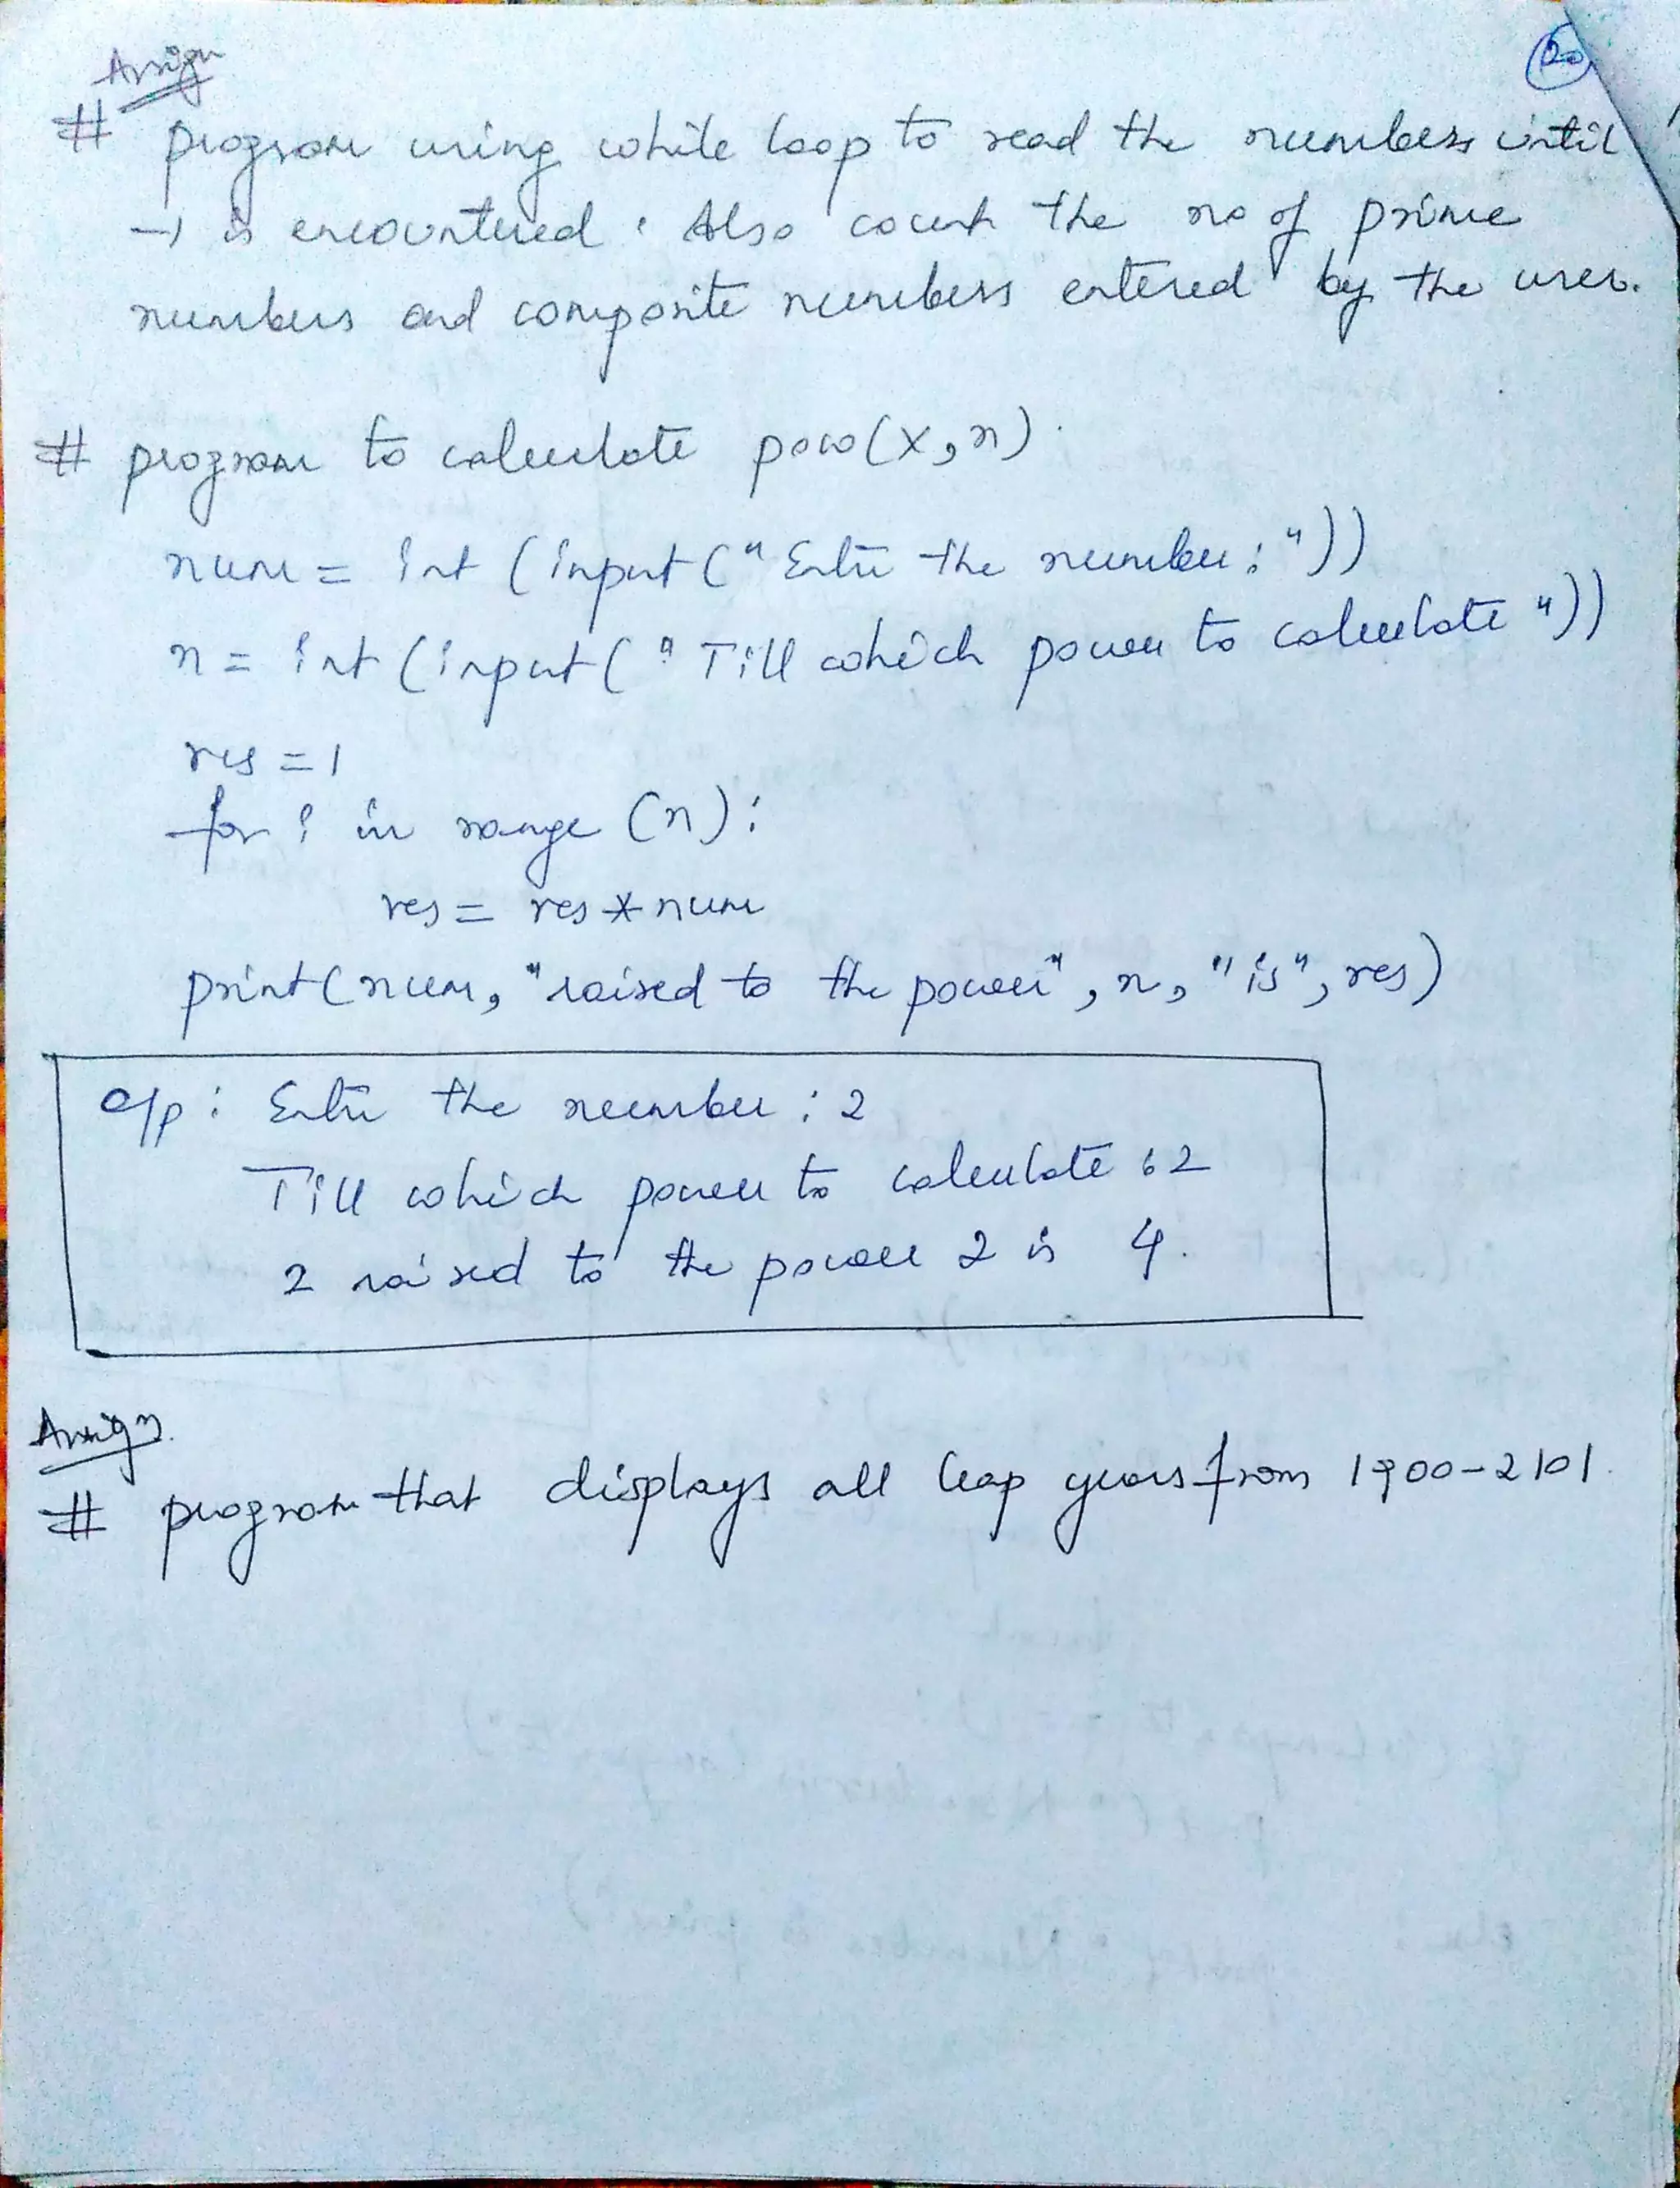 Assign
20
# program using while loop to read the numbers until
-1 is encountered. Also count the no of prime
numbers and composite numbers entered by the user.
# program to calculate pow(x,n)
num = int (input ("Enter the number:"))
n = int (input ("Till which power to calculate"))
res = 1
for i in range (n):
res = res * num
print (num, "raised to the power", n, "is", res)
o/p: Enter the number: 2
Till which power to calculate : 2
2 raised to the power 2 is 4.
Assign
# program that displays all leap years from 1900-2101.